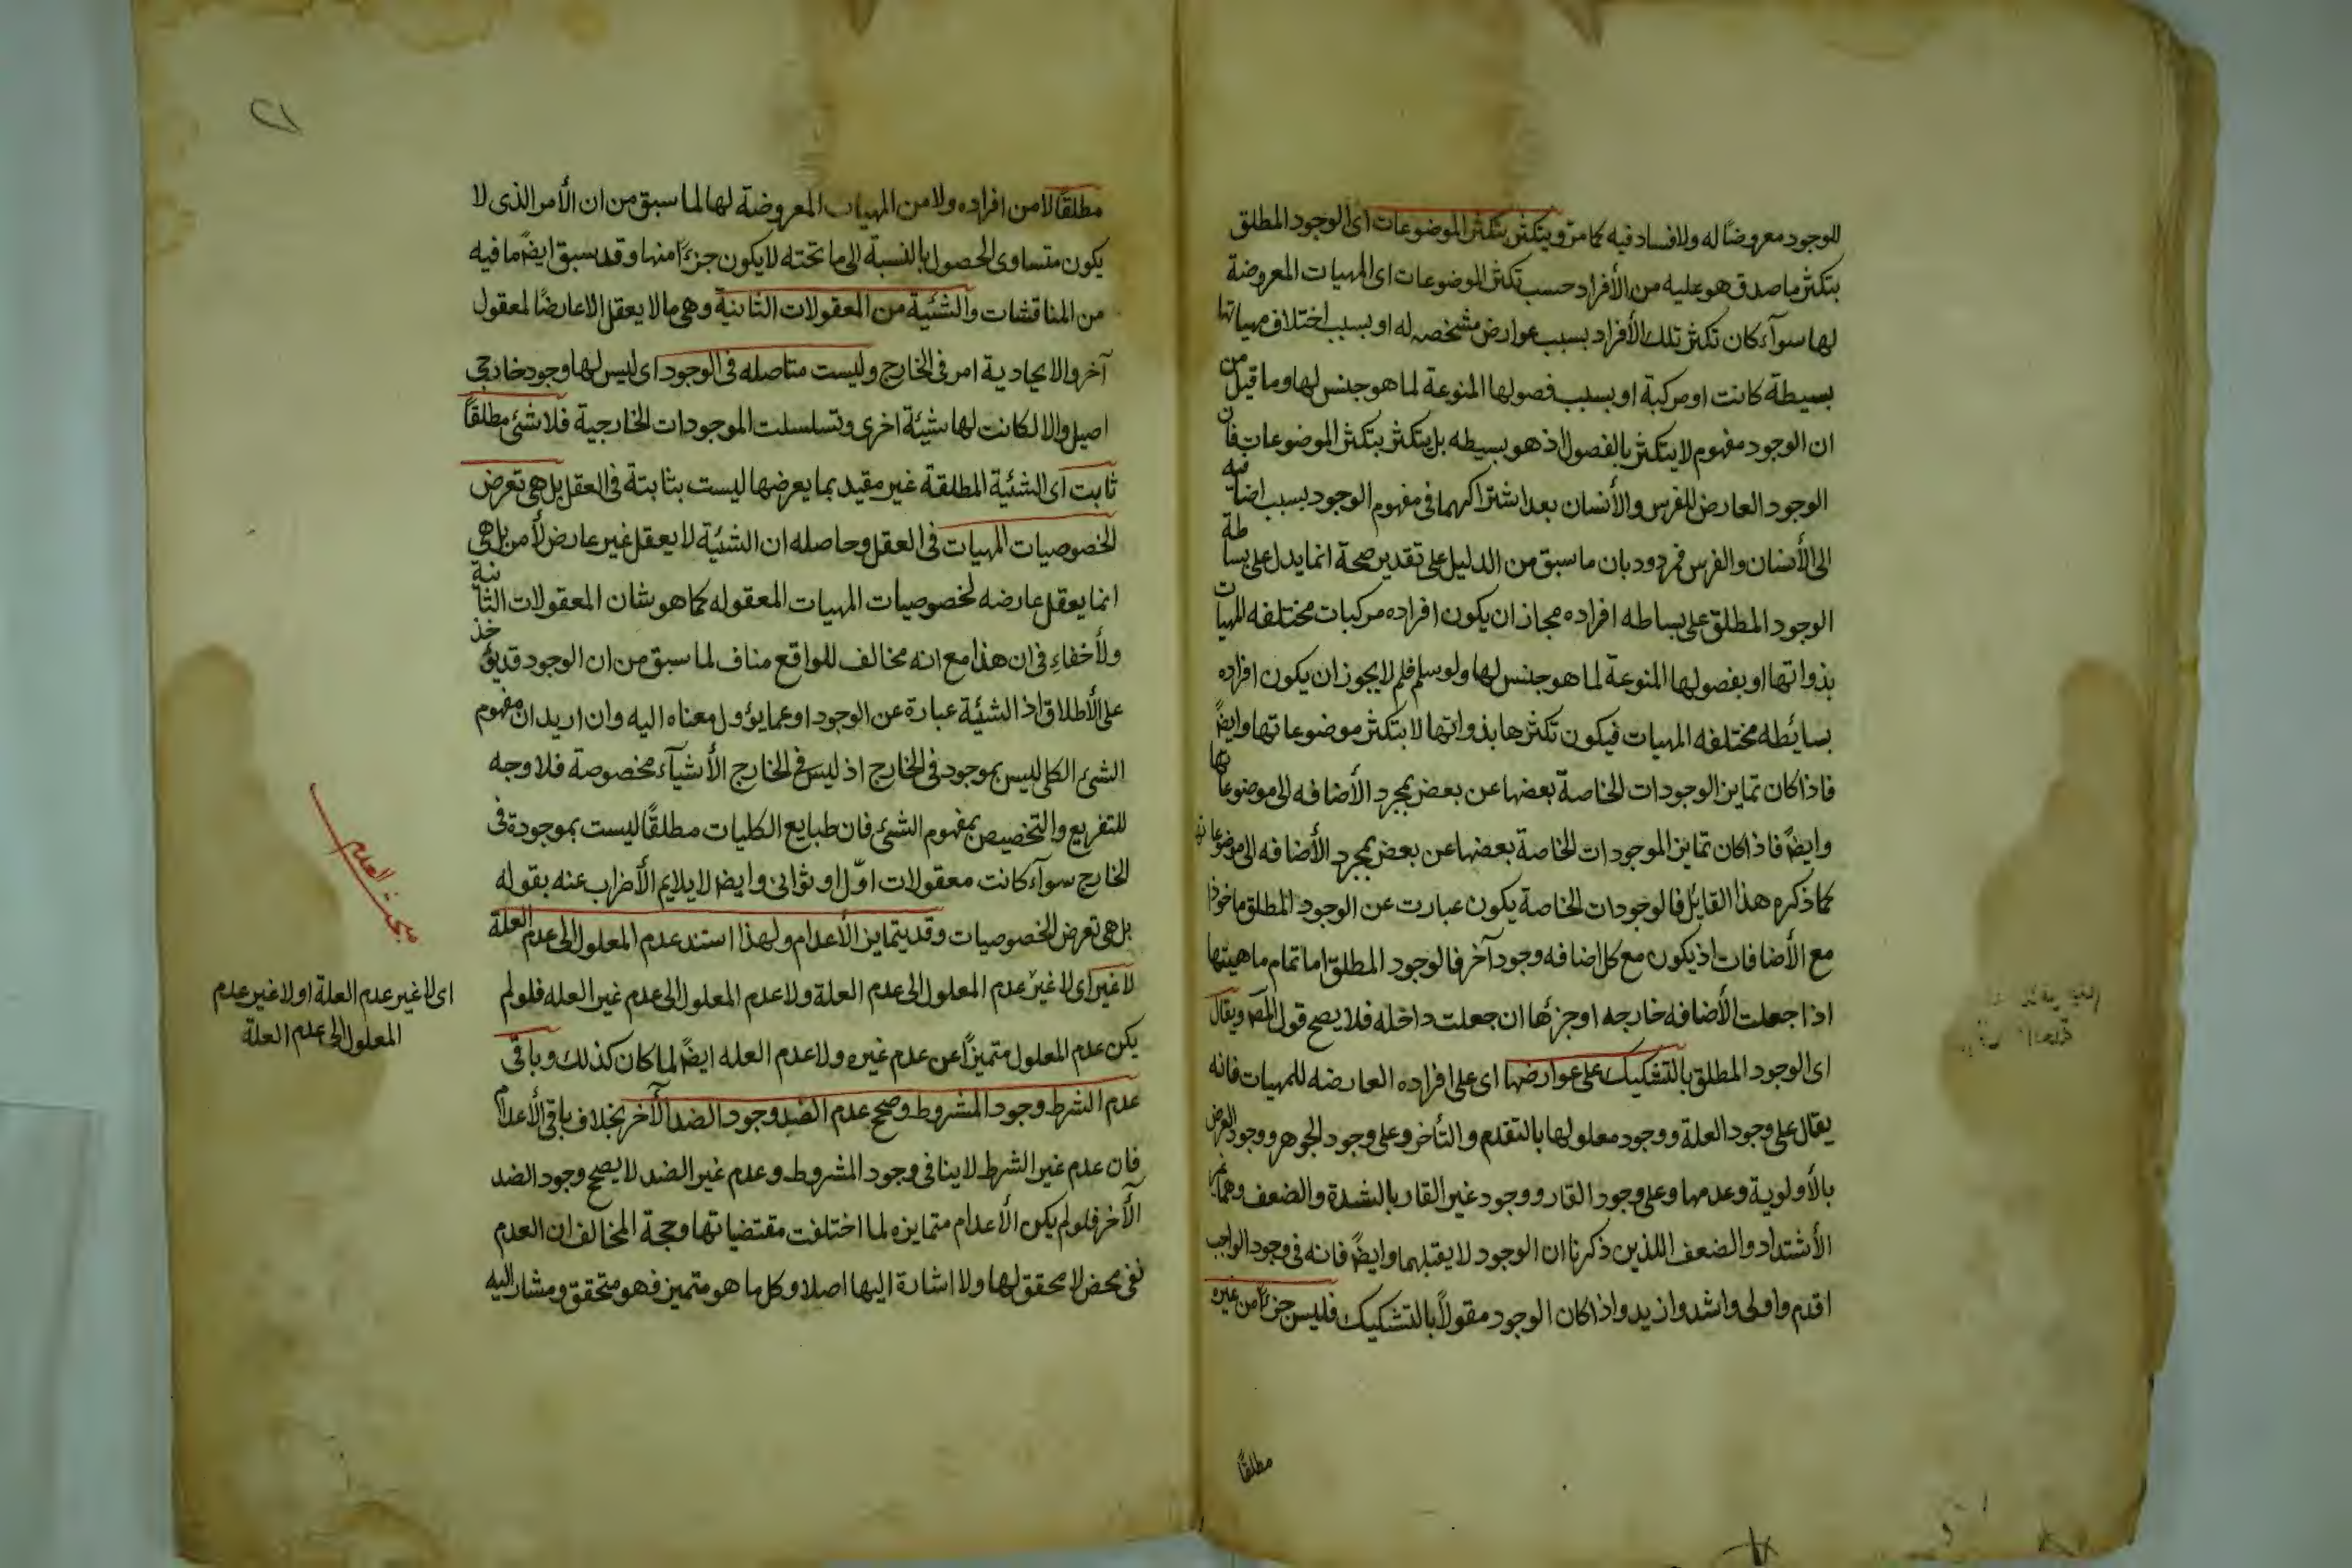 للوجود معروضًا له ولا فساد فيه كما مر ويتكثر بتكثر الموضوعات اى الوجود المطلق
يتكثر ما صدق هو عليه من الأفراد حسب تكثر الموضوعات اى المهيات المعروضة
لها سوآء كان تكثر تلك الأفراد بسبب عوارض مشخصه له او بسبب اختلاف مهياتها
بسيطة كانت او مركبة او بسبب فصولها المنوعة لما هو جنس لها وما قيل من
ان الوجود مفهوم لا يتكثر بالفصول اذ هو بسيطه بل يتكثر بتكثر الموضوعات فان
الوجود العارض للفرس والأنسان بعد اشتراكهما فى مفهوم الوجود بسبب اضافيه
الى الأنسان والفرس فمردود بان ما سبق من الدليل على تقدير صحة انما يدل على بساطة
الوجود المطلق على بساطه افراده مجاز ان يكون افراده مركبات مختلفه المهيات
بذواتها او بفصولها المنوعة لما هو جنس لها ولو سلم فلم لا يجوز ان يكون افراده
بسائطه مختلفه المهيات فيكون تكثرها بذواتها لا بتكثر موضوعاتها وايضً
فاذا كان تمايز الوجودات الخاصة بعضها عن بعض بمجرد الأضافه الى موضوعاتها
وايضً فاذا كان تمايز الموجودات الخاصة بعضها عن بعض بمجرد الأضافه الى موضوعاتها
كما ذكره هذا القايل فالوجودات الخاصة يكون عبارت عن الوجود المطلق ماخوذا
مع الأضافات اذ يكون مع كل اضافه وجود آخر فالوجود المطلق اما تمام ماهيتها
اذا جعلت الأضافه خارجه او جزئها ان جعلت داخله فلا يصح قول المصـ ويقال
اى الوجود المطلق بالتشكيك على عوارضها اى على افراده العارضه للمهيات فانه
يقال على وجود العلة ووجود معلولها بالتقدم والتأخر وعلى وجود الجوهر ووجود العرض
بالأولوية وعدمها وعلى وجود القار ووجود غير القار بالشدة والضعف وهما غير
الأشتداد والضعف اللذين ذكرنا ان الوجود لا يقبلهما وايضً فانه فى وجود الواجب
اقدم واولى واشد وازيد واذا كان الوجود مقولاً بالتشكيك فليس جزءًا من غيره
مطلقًا
٢١
مطلقًا لا من افراده ولا من المهيات المعروضة لها لما سبق من ان الأمر الذى لا
يكون متساوى الحصول بالنسبة الى ما تحته لا يكون جزءًا منها وقد سبق ايضً ما فيه
من المناقشات والشئية من المعقولات الثانية وهى ما لا يعقل الا عارضًا لمعقول
آخر والا يحاد ية امر فى الخارج وليست متاصله فى الوجود اى ليس لها وجود خارجى
اصيل والا لكانت لها شيئة اخرى وتسلسلت الموجودات الخارجية فلا شئ مطلقًا
ثابت اى الشئية المطلقة غير مقيد بما يعرضها ليست بثابتة فى العقل بل هى تعرض
لخصوصيات المهيات فى العقل وحاصله ان الشئية لا يعقل غير عارض لأمر بل هى
انما يعقل عارضه لخصوصيات المهيات المعقوله كما هو شان المعقولات الثانية
ولأخفاء فى ان هذا مع انه مخالف للواقع مناف لما سبق من ان الوجود قد يؤخذ
على الأطلاق اذ الشئية عبارة عن الوجود او عما يؤول معناه اليه وان اريد ان مفهوم
الشئ الكلى ليس بموجود فى الخارج اذ ليس فى الخارج الأشيآء مخصوصة فلا وجه
للتفريع والتخصيص بمفهوم الشئ فان طبايع الكليات مطلقًا ليست بموجودة فى
الخارج سوآء كانت معقولات اوّل او ثوانى وايضا لا يلايم الأضراب عنه بقوله
بل هى تعرض لخصوصيات وقد يتمايز الأعدام ولهذا استند عدم المعلول الى عدم العلة
لا غير اى لا غير عدم المعلول الى عدم العلة ولا عدم المعلول الى عدم غير العله فلو لم
يكن عدم المعلول متميزًا عن عدم غيره ولا عدم العله ايضً لما كان كذلك ونافى
عدم الشرط وجود المشروط وصحح عدم الضد وجود الضد الآخر بخلاف باقى الأعدام
فان عدم غير الشرط لا ينافى وجود المشروط وعدم غير الضد لا يصحح وجود الضد
الآخر فلو لم يكن الأعدام متمايزه لما اختلفت مقتضياتها وحجة المخالف ان العدم
نفى محض لا تحقق لها ولا اشارة اليها اصلا وكل ما هو متميز فهو متحقق ومشار اليه
مبحث العدم
اى لا غير عدم العلة او لا غير عدم
المعلول الى عدم العلة